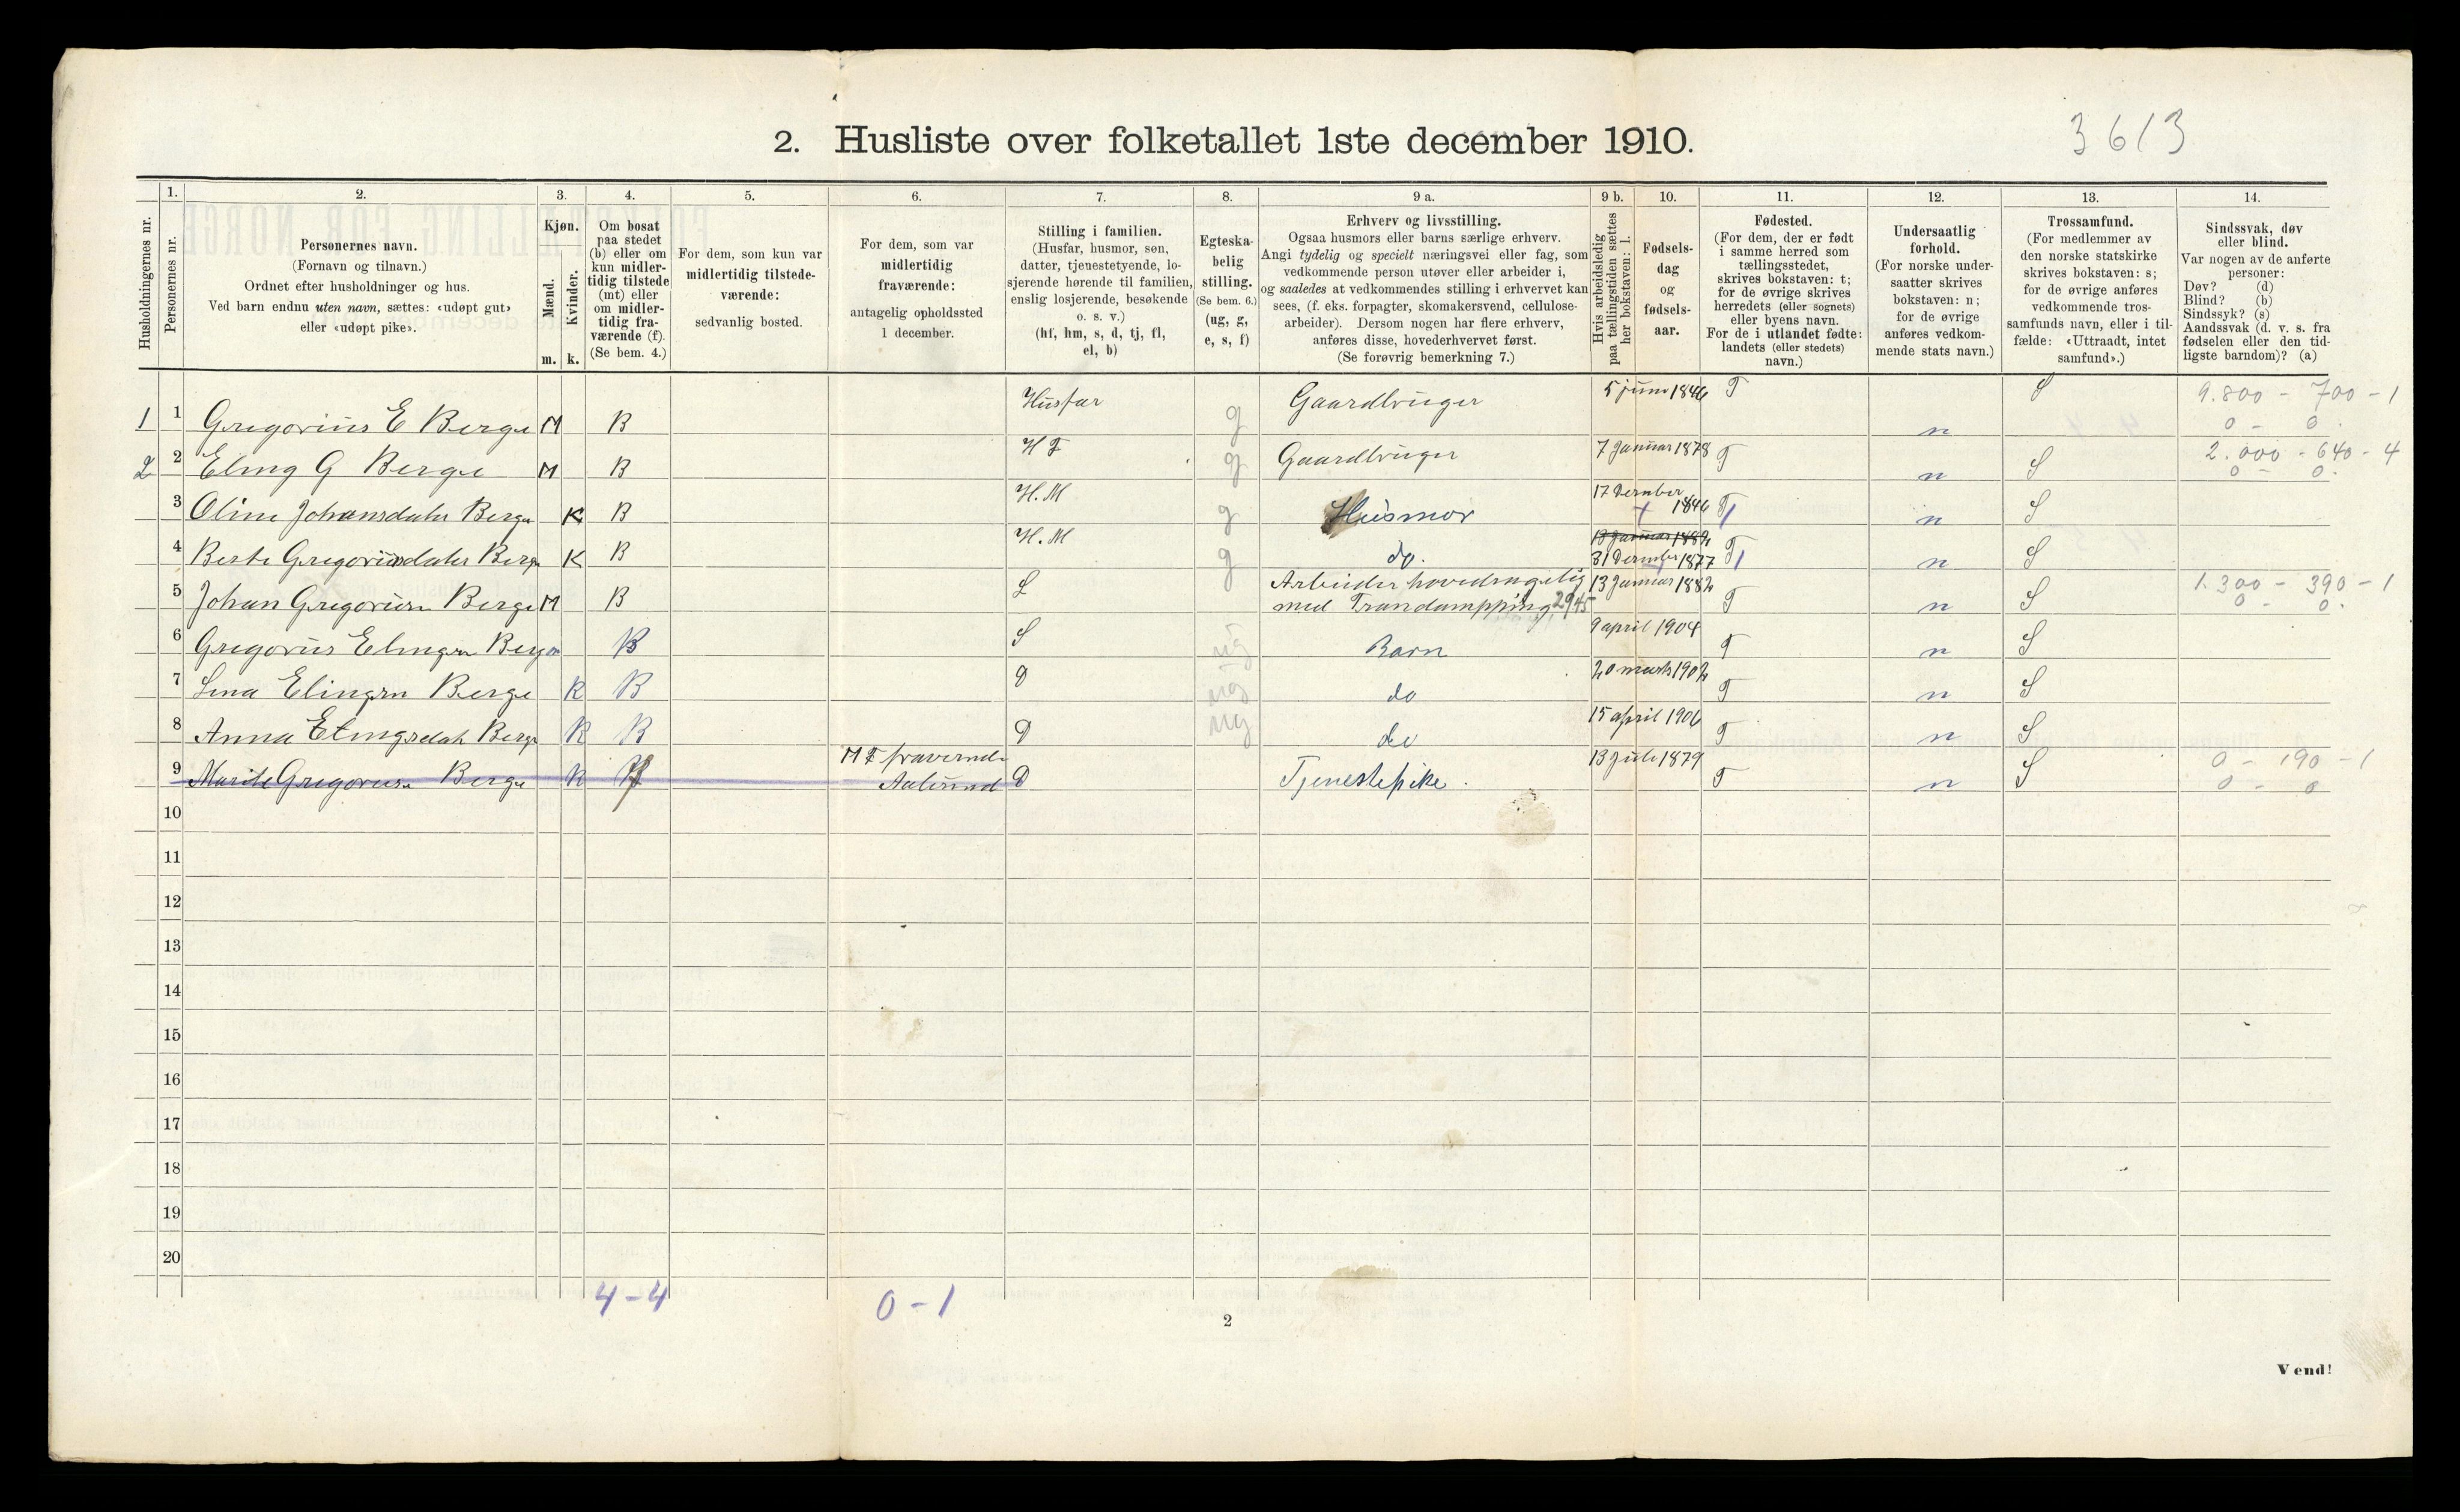 2. Husliste over folketallet 1ste december 1910.
3613
Husholdningernes nr.
1.
Personernes nr.
2.
Personernes navn.
(Fornavn og tilnavn.)
Ordnet efter husholdninger og hus.
Ved barn endnu uten navn, sættes: «udøpt gut»
eller «udøpt pike».
3.
Kjøn.
Mænd.
Kvinder.
m. k.
4.
Om bosat
paa stedet
(b) eller om
kun midler-
tidig tilstede
(mt) eller
om midler-
tidig fra-
værende (f).
(Se bem. 4.)
5.
For dem, som kun var
midlertidig tilstede-
værende:
sedvanlig bosted.
6.
For dem, som var
midlertidig
fraværende:
antagelig opholdssted
1 december.
7.
Stilling i familien.
(Husfar, husmor, søn,
datter, tjenestetyende, lo-
sjerende hørende til familien,
enslig losjerende, besøkende
o. s. v.)
(hf, hm, s, d, tj, fl,
el, b)
8.
Egteska-
belig
stilling.
(Se bem. 6.)
(ug, g,
e, s, f)
9 a.
Erhverv og livsstilling.
Ogsaa husmors eller barns særlige erhverv.
Angi tydelig og specielt næringsvei eller fag, som
vedkommende person utøver eller arbeider i,
og saaledes at vedkommendes stilling i erhvervet kan
sees, (f. eks. forpagter, skomakersvend, cellulose-
arbeider). Dersom nogen har flere erhverv,
anføres disse, hovederhvervet først.
(Se forøvrig bemerkning 7.)
9 b.
Hvis arbeidsledig
paa tællingstiden sættes
her bokstaven: l.
10.
Fødsels-
dag
og
fødsels-
aar.
11.
Fødested.
(For dem, der er født
i samme herred som
tællingsstedet,
skrives bokstaven: t;
for de øvrige skrives
herredets (eller sognets)
eller byens navn.
For de i utlandet fødte:
landets (eller stedets)
navn.)
12.
Undersaatlig
forhold.
(For norske under-
saatter skrives
bokstaven: n;
for de øvrige
anføres vedkom-
mende stats navn.)
13.
Trossamfund.
(For medlemmer av
den norske statskirke
skrives bokstaven: s;
for de øvrige anføres
vedkommende tros-
samfunds navn, eller i til-
fælde: «Uttraadt, intet
samfund».)
14.
Sindssvak, døv
eller blind.
Var nogen av de anførte
personer:
Døv? (d)
Blind? (b)
Sindssyk? (s)
Aandssvak (d. v. s. fra
fødselen eller den tid-
ligste barndom)? (a)
1 1 Gregorius E Berge M B Husfar g Gaardbruger 5 juni 1846 T n S 9.800 - 700 - 1
0 - 0.
2 2 Eling G Berge M B H F g Gaardbruger 7 Januar 1878 T n S 2.000 - 640 - 4
0 - 0.
3 Oline Johansdater Berge K B H.M g Husmor 17 Desember 1846 T n S
4 Berte Gregoriusdater Berge K B H.M g do. 13 Januar 1882
31 Desember 1877 T n S
5 Johan Gregoriusen Berge M B L Arbeider hovedsagelig
med Trandampping 2945 13 Januar 1882 T n S 1.300 - 390 - 1
0 - 0.
6 Gregorius Elingsen Berge m B S ug Barn 9 april 1904 T n S
7 Lina Elingsen Berge K B D ug do 20 marts 1902 T n S
8 Anna Elingsdah Berge K B D ug do 15 april 1906 T n S
9 Marite Gregoriusen Berge K f M F fraværende
Aalesund D Tjenestepike. 13 juli 1879 T n S 0 - 190 - 1
0 - 0
10
11
12
13
14
15
16
17
18
19
20
4 - 4
0 - 1
2
Vend!